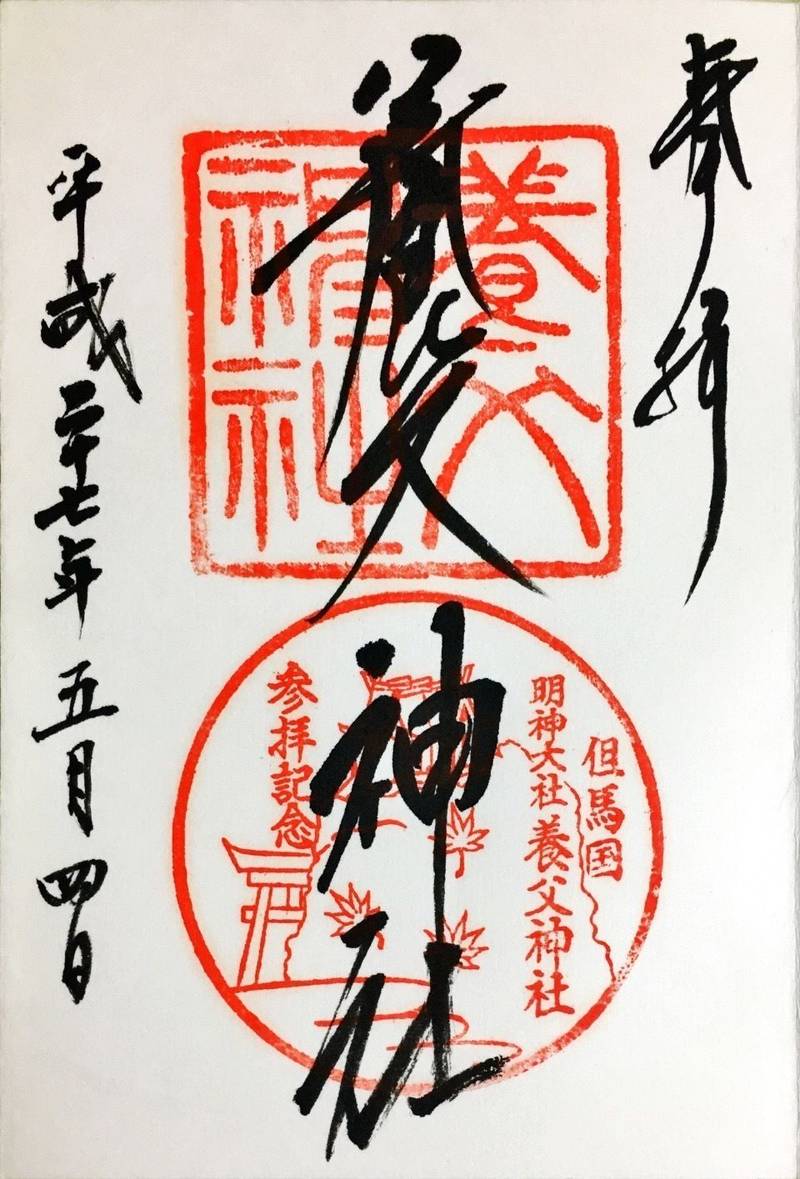 奉拝
養父神社
平成二十七年五月四日
養父
神社
但馬国
明神大社養父神社
参拝記念